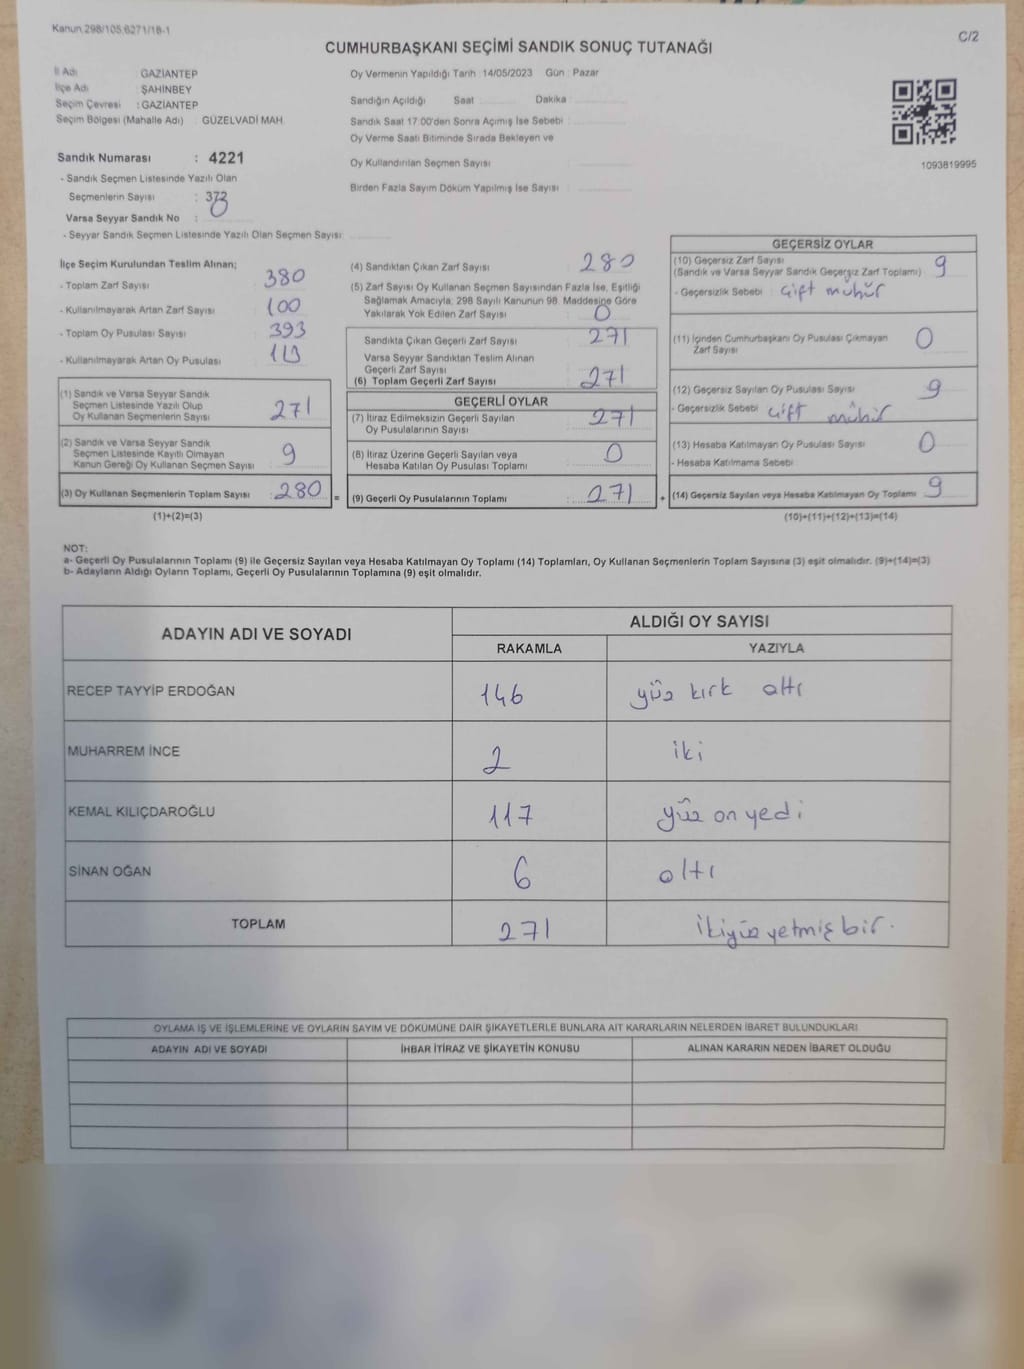 Kanun 298/105,6271/18-1
C/2
CUMHURBAŞKANI SEÇİMİ SANDIK SONUÇ TUTANAĞI
İl Adı : GAZİANTEP
İlçe Adı : ŞAHİNBEY
Seçim Çevresi : GAZİANTEP
Seçim Bölgesi (Mahalle Adı) : GÜZELVADİ MAH.
Sandık Numarası : 4221
- Sandık Seçmen Listesinde Yazılı Olan
Seçmenlerin Sayısı : 373
Varsa Seyyar Sandık No :
- Seyyar Sandık Seçmen Listesinde Yazılı Olan Seçmen Sayısı:
Oy Vermenin Yapıldığı Tarih :14/05/2023 Gün : Pazar
Sandığın Açıldığı Saat : Dakika :
Sandık Saat 17:00'den Sonra Açılmış İse Sebebi :
Oy Verme Saati Bitiminde Sırada Bekleyen ve
Oy Kullandırılan Seçmen Sayısı :
Birden Fazla Sayım Döküm Yapılmış İse Sayısı :
1093819995
İlçe Seçim Kurulundan Teslim Alınan;
- Toplam Zarf Sayısı : 380
- Kullanılmayarak Artan Zarf Sayısı : 100
- Toplam Oy Pusulası Sayısı : 393
- Kullanılmayarak Artan Oy Pusulası : 113
(1) Sandık ve Varsa Seyyar Sandık
Seçmen Listesinde Yazılı Olup
Oy Kullanan Seçmenlerin Sayısı : 271
(2) Sandık ve Varsa Seyyar Sandık
Seçmen Listesinde Kayıtlı Olmayan
Kanun Gereği Oy Kullanan Seçmen Sayısı : 9
(3) Oy Kullanan Seçmenlerin Toplam Sayısı : 280 =
(1)+(2)=(3)
(4) Sandıktan Çıkan Zarf Sayısı : 280
(5) Zarf Sayısı Oy Kullanan Seçmen Sayısından Fazla İse, Eşitliği
Sağlamak Amacıyla, 298 Sayılı Kanunun 98. Maddesine Göre
Yakılarak Yok Edilen Zarf Sayısı : 0
Sandıkta Çıkan Geçerli Zarf Sayısı : 271
Varsa Seyyar Sandıktan Teslim Alınan
Geçerli Zarf Sayısı
(6) Toplam Geçerli Zarf Sayısı : 271
GEÇERLİ OYLAR
(7) İtiraz Edilmeksizin Geçerli Sayılan
Oy Pusulalarının Sayısı : 271
(8) İtiraz Üzerine Geçerli Sayılan veya
Hesaba Katılan Oy Pusulası Toplamı : 0
(9) Geçerli Oy Pusulalarının Toplamı : 271 +
GEÇERSİZ OYLAR
(10) Geçersiz Zarf Sayısı
(Sandık ve Varsa Seyyar Sandık Geçersiz Zarf Toplamı) : 9
- Geçersizlik Sebebi : Çift mühür
(11) İçinden Cumhurbaşkanı Oy Pusulası Çıkmayan
Zarf Sayısı : 0
(12) Geçersiz Sayılan Oy Pusulası Sayısı : 9
- Geçersizlik Sebebi : Çift mühür
(13) Hesaba Katılmayan Oy Pusulası Sayısı : 0
- Hesaba Katılmama Sebebi
(14) Geçersiz Sayılan veya Hesaba Katılmayan Oy Toplamı : 9
(10)+(11)+(12)+(13)=(14)
NOT:
a- Geçerli Oy Pusulalarının Toplamı (9) ile Geçersiz Sayılan veya Hesaba Katılmayan Oy Toplamı (14) Toplamları, Oy Kullanan Seçmenlerin Toplam Sayısına (3) eşit olmalıdır. (9)+(14)=(3)
b- Adayların Aldığı Oyların Toplamı, Geçerli Oy Pusulalarının Toplamına (9) eşit olmalıdır.
ADAYIN ADI VE SOYADI ALDIĞI OY SAYISI
RAKAMLA YAZIYLA
RECEP TAYYİP ERDOĞAN 146 yüz kırk altı
MUHARREM İNCE 2 iki
KEMAL KILIÇDAROĞLU 117 yüz on yedi
SİNAN OĞAN 6 altı
TOPLAM 271 ikiyüz yetmiş bir.
OYLAMA İŞ VE İŞLEMLERİNE VE OYLARIN SAYIM VE DÖKÜMÜNE DAİR ŞİKAYETLERLE BUNLARA AİT KARARLARIN NELERDEN İBARET BULUNDUKLARI
ADAYIN ADI VE SOYADI İHBAR İTİRAZ VE ŞİKAYETİN KONUSU ALINAN KARARIN NEDEN İBARET OLDUĞU